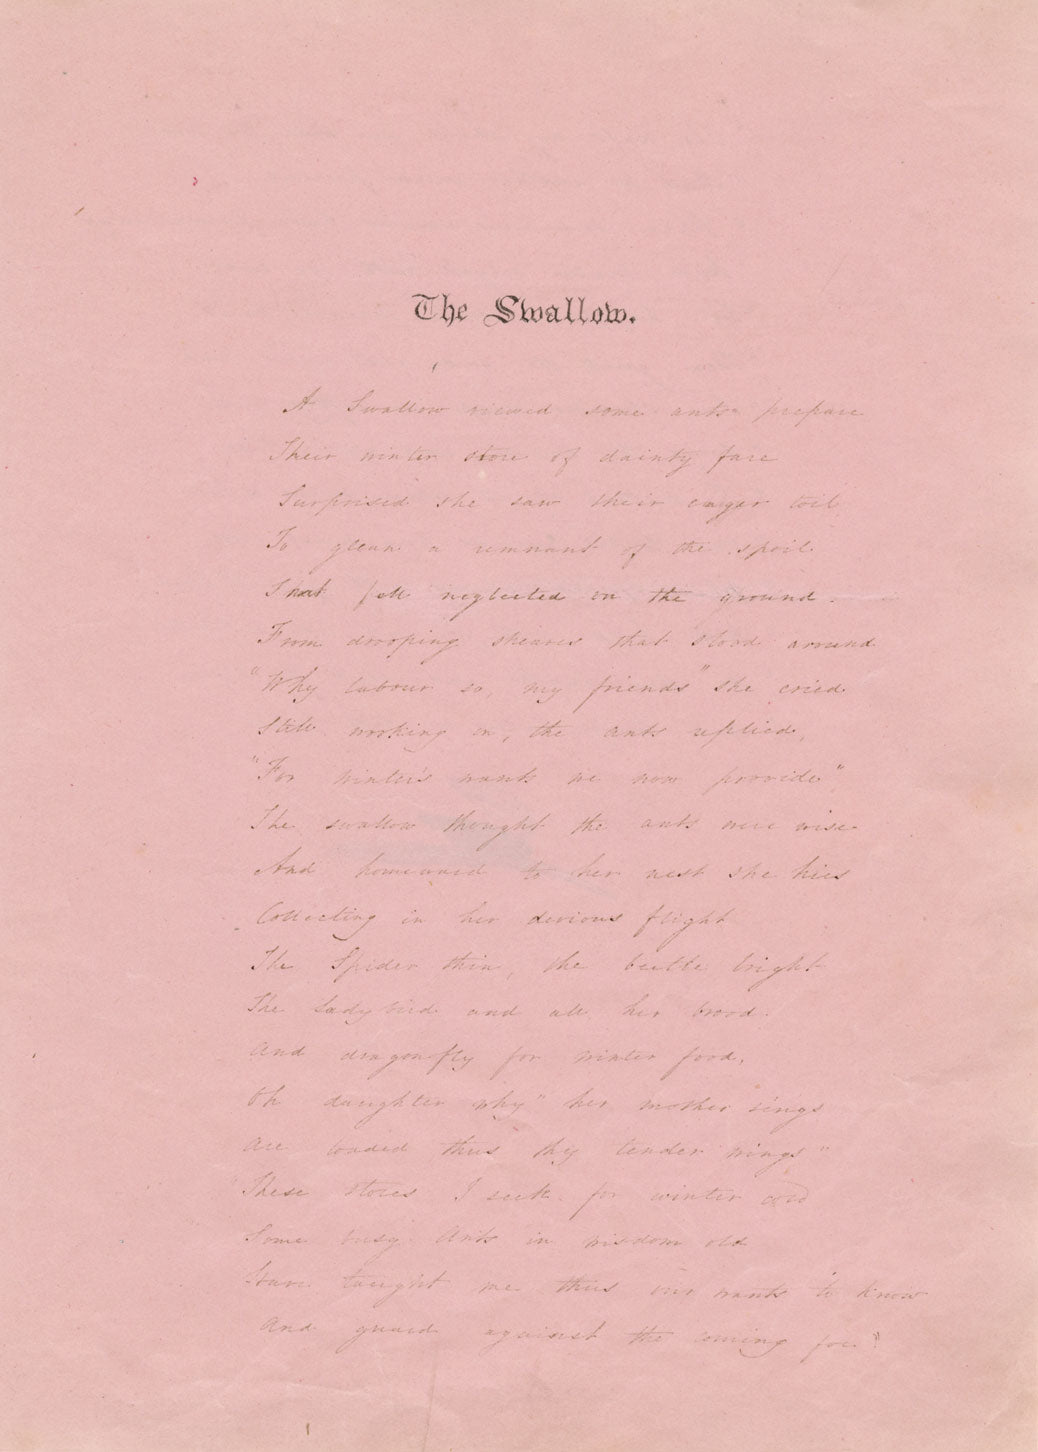 The Swallow.
A Swallow viewed some ants prepare
Their winter store of dainty fare
Surprised she saw their eager toil
To glean a remnant of the spoil
That fell neglected on the ground.
From drooping sheaves that stood around
"Why labour so, my friends" she cried
Still working on, the ants replied,
"For winter's wants we now provide"
The swallow thought the ants were wise
And homeward to her nest she hies
Collecting in her devious flight
The Spider thin, the beetle bright
The Lady bird and all her brood.
And dragon-fly for winter food.
Oh daughter why" her mother sings
Are loaded thus thy tender wings"
"These stores I seek for winter cold
Some busy Ants in wisdom old
Have taught me thus our wants to know
And guard against the coming foe"